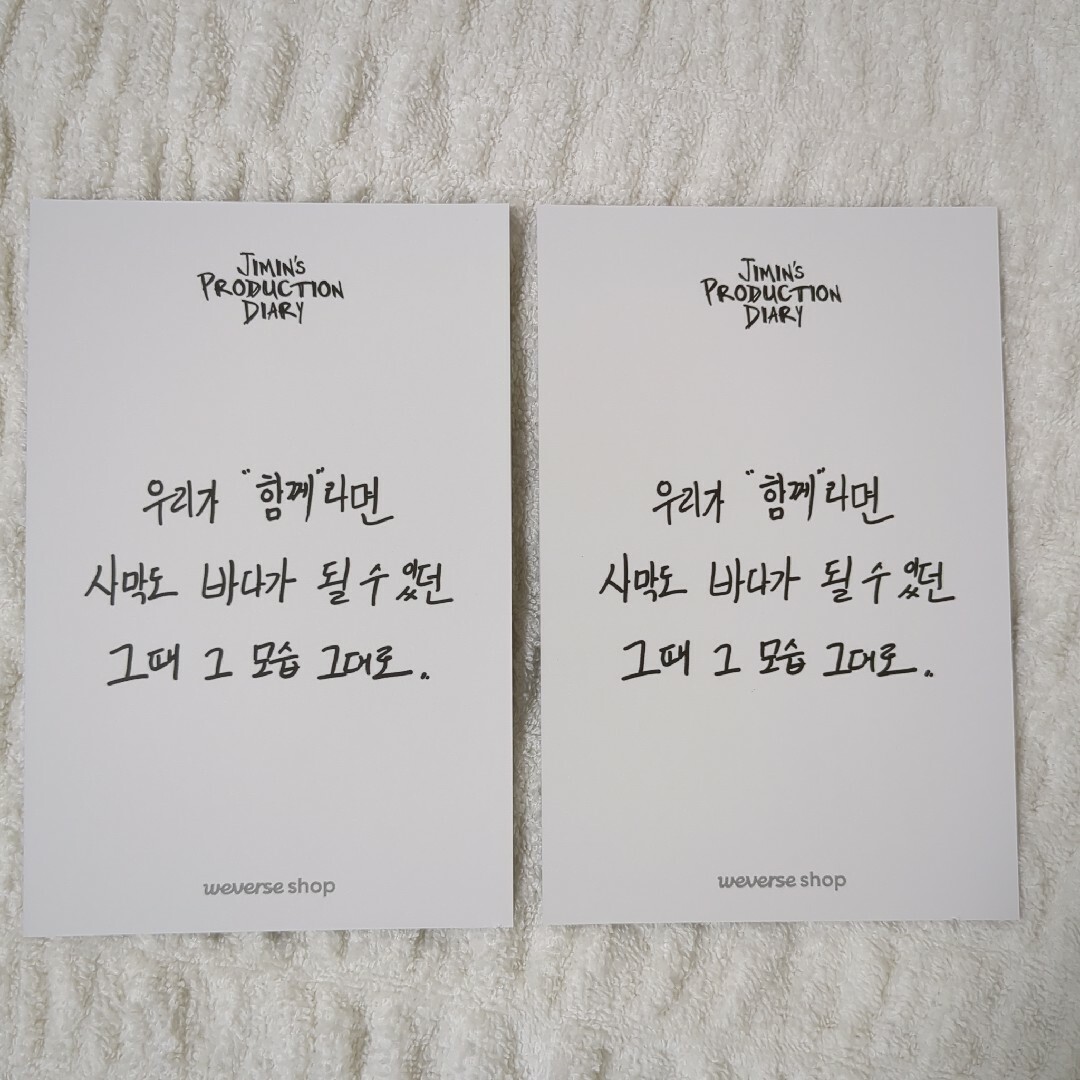 JIMIN'S
PRODUCTION
DIARY
우리가 "함께"라면
사막도 바다가 될 수 있던
그때 그 모습 그대로..
weverse shop
JIMIN'S
PRODUCTION
DIARY
우리가 "함께"라면
사막도 바다가 될 수 있던
그때 그 모습 그대로..
weverse shop